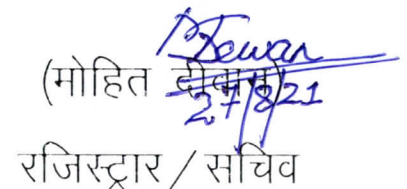 Dewan
(मोहित दीवान)
27/8/21
रजिस्ट्रार / सचिव